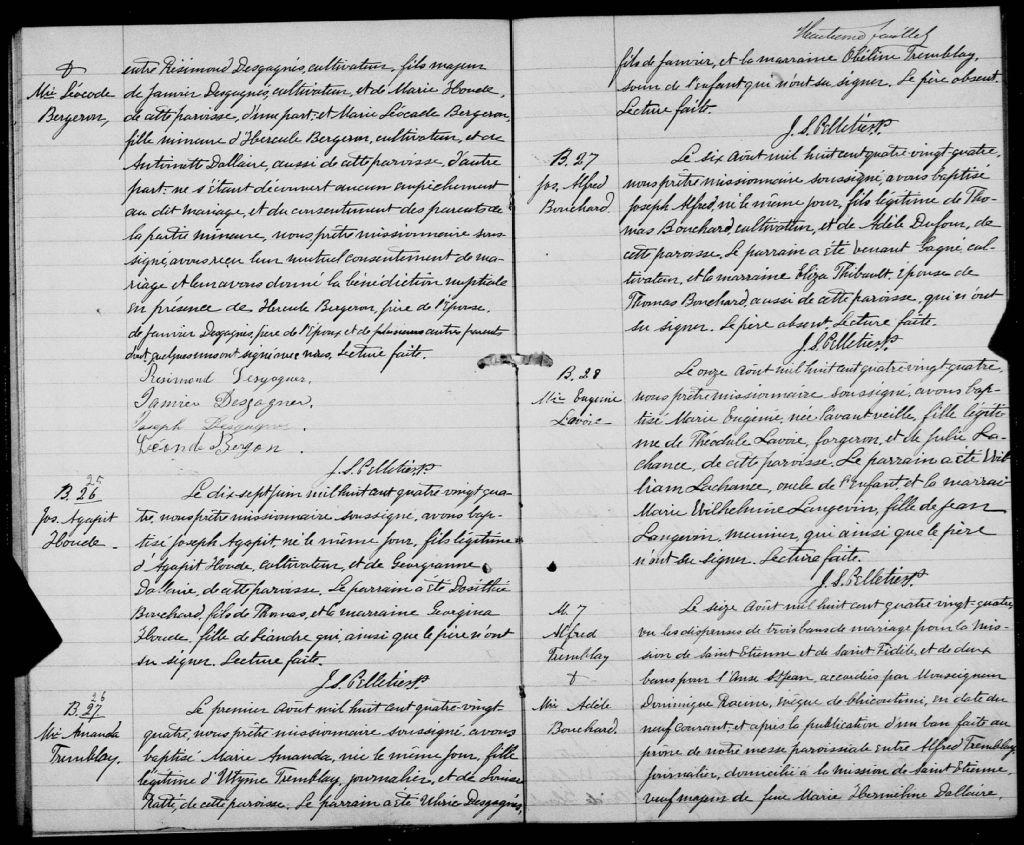 +
Mie Léocade
Bergeron,
entre Résimond Desgagnés, cultivateur, fils majeur
de Janvier Desgagnés, cultivateur, et de Marie Houde,
de cette paroisse, d'une part et Marie Léocade Bergeron,
fille mineure d'Hercule Bergeron, cultivateur, et de
Antoinette Dallaire, aussi de cette paroisse, d'autre
part: ne s'étant découvert aucun empêchement
au dit mariage, et du consentement des parents de
la partie mineure, nous, prêtre missionnaire sous-
signé, avons reçu leur mutuel consentement de ma-
riage et leur avons donné la bénédiction nuptiale
en présence de Hercule Bergeron, père de l'Epouse,
de Janvier Desgagnés, père de l'Epoux, et de plusieurs autres parents
dont quelques uns ont signé avec nous. Lecture faite.
Résimond Desgagner.
Janvier Desgagner.
Joseph Desgagner
J. S. Pelletier Ptr
25
B. 26
Jos. Agapit
Houde
Le dix-sept Juin mil huit cent quatre vingt-qua-
tre, nous prêtre missionnaire soussigné, avons bap-
tisé Joseph Agapit, né le même jour, fils légitime
d'Agapit Houde, cultivateur, et de Georgianne
Dallaire, de cette paroisse. Le parrain a été Dosithée
Bouchard, fils de Thomas, et la marraine Georgina
Houde, fille de Léandre qui, ainsi que le père n'ont
su signer. Lecture faite.
J. S. Pelletier Ptr
26
B. 27
Mie Amanda
Tremblay.
Le premier Août mil huit cent quatre-vingt
quatre, nous prêtre missionnaire soussigné, avons
baptisé Marie Amanda, née le même jour, fille
légitime d' Tremblay, journalier, et de Louise
Ratté, de cette paroisse. Le parrain a été Ulric Desgagnés,
Huitième feuillet
fils de Janvier, et la marraine Obéline Tremblay,
soeur de l'enfant qui n'ont su signer. Le père absent.
Lecture faite.
J. S. Pelletier Ptr
B. 27
Jos. Alfred
Bouchard.
Le six Août mil huit cent quatre-vingt-quatre,
nous prêtre missionnaire soussigné, avons baptisé
Joseph Alfred, né le même jour, fils légitime de Tho-
mas Bouchard, cultivateur, et de Adèle Dufour, de
cette paroisse. Le parrain a été Venant Gagné cul-
tivateur, et la marraine Eliza Thibault, Epouse de
Thomas Bouchard, aussi de cette paroisse, qui n'ont
su signer. Le père absent. Lecture faite.
J. S. Pelletier Ptr
B. 28
Mie Eugénie
Lavoie
Le onze Août mil huit cent quatre-vingt-quatre,
nous prêtre missionnaire soussigné, avons bap-
tisé Marie Eugénie, née l'avant veille, fille légiti-
me de Théodule Lavoie, forgeron, et de Julie La-
chance, de cette paroisse. Le parrain a été Wil-
liam Lachance, oncle de l'Enfant et la marrai-
Marie Wilhelmine Langevin, fille de Jean
Langevin, meunier, qui ainsi que le père
n'ont su signer. Lecture faite.
J. S. Pelletier Ptr
M. 7
Alfred
Tremblay
+
Mie Adèle
Bouchard.
Le seize Août mil huit cent quatre-vingt-quatre,
vu les dispenses de trois bans de mariage pour la Mis-
sion de Saint Etienne et de Saint Fidèle, et de deux
bans pour l'Anse St Jean, accordées par Monseigneur
Dominique Racine, évêque de Chicoutimi, en date du
neuf courant, et après la publication d'un ban faite au
prône de notre messe paroissiale entre Alfred Tremblay,
journalier, domicilié à la mission de Saint Etienne,
veuf majeur de feue Marie Herméline Dallaire,